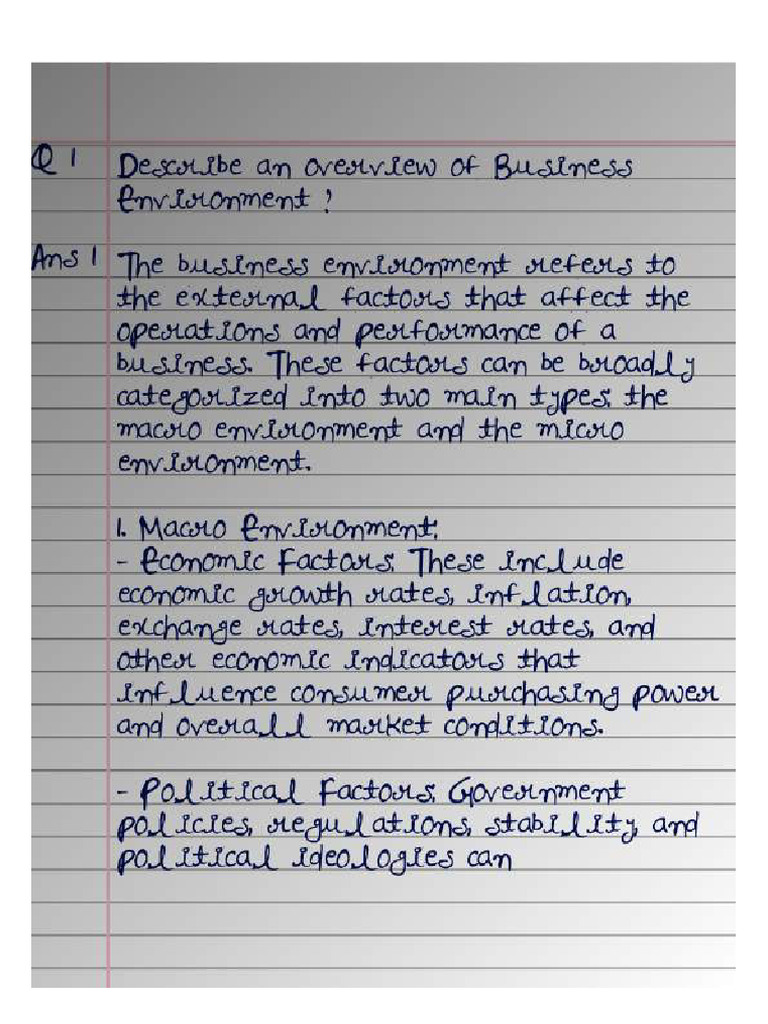 Q 1 Describe an overview of Business
Environment ?
Ans 1 The business environment refers to
the external factors that affect the
operations and performance of a
business. These factors can be broadly
categorized into two main types: the
macro environment and the micro
environment.
1. Macro Environment:
- Economic Factors: These include
economic growth rates, inflation,
exchange rates, interest rates, and
other economic indicators that
influence consumer purchasing power
and overall market conditions.
- Political Factors: Government
policies, regulations, stability, and
political ideologies can